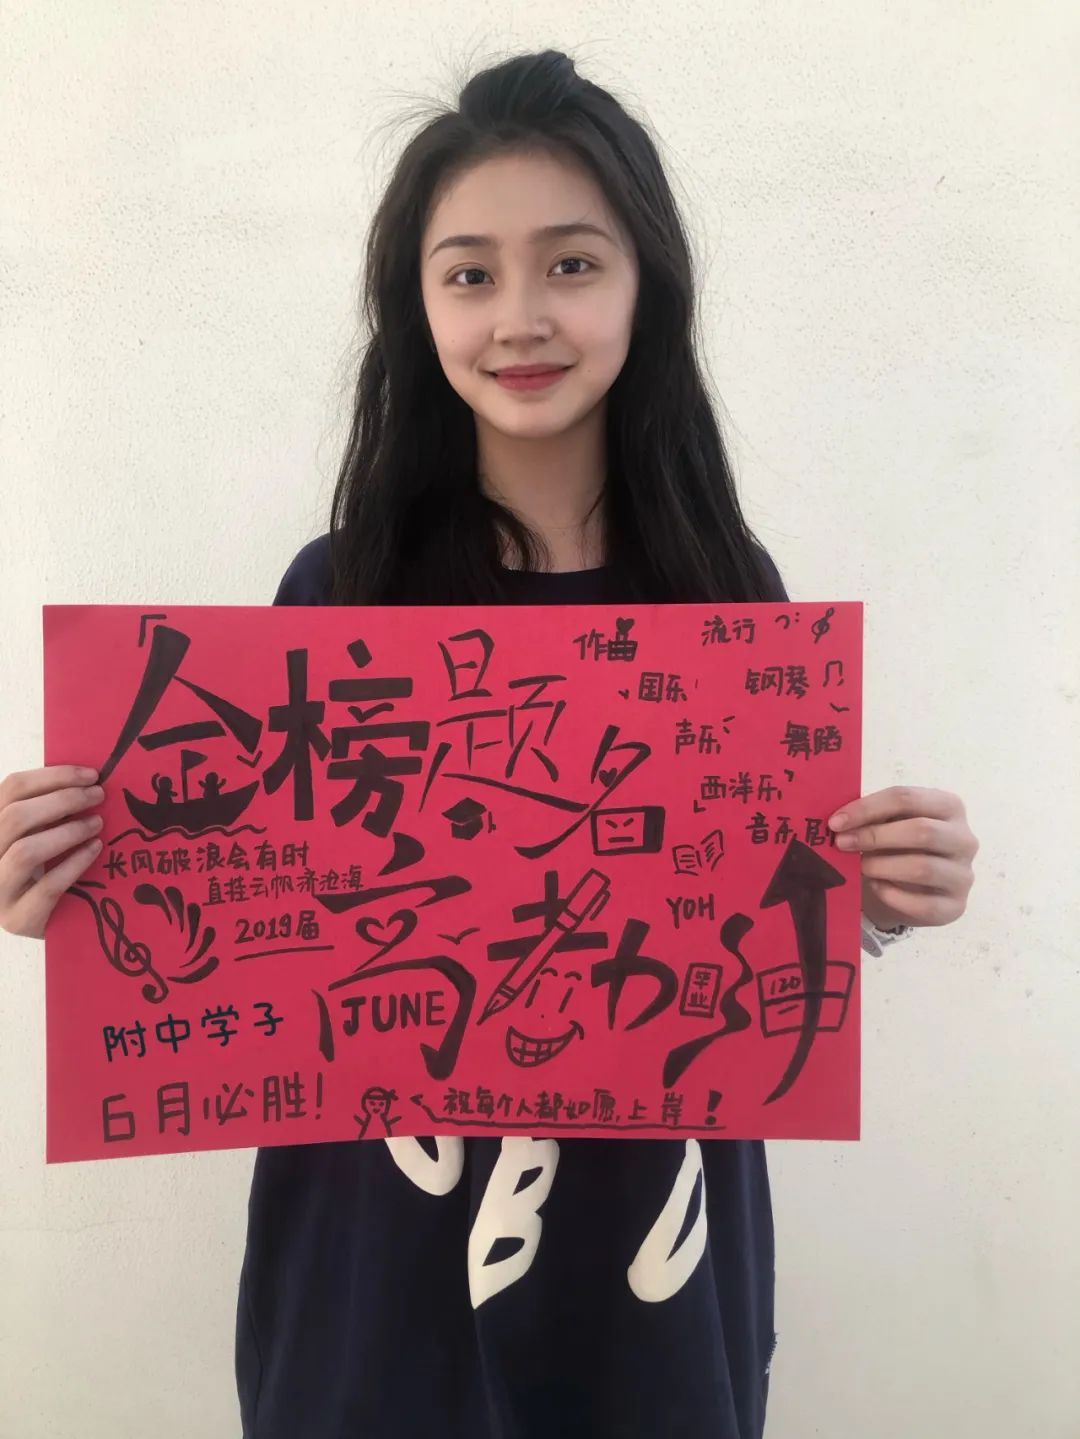 金榜题名
作曲
流行
国乐
钢琴
声乐
舞蹈
西洋乐
音乐剧
长风破浪会有时
直挂云帆济沧海
2019届
高考加油
YOH
JUNE
毕业
120
附中学子
6月必胜!
祝每个人都如愿上岸!
B